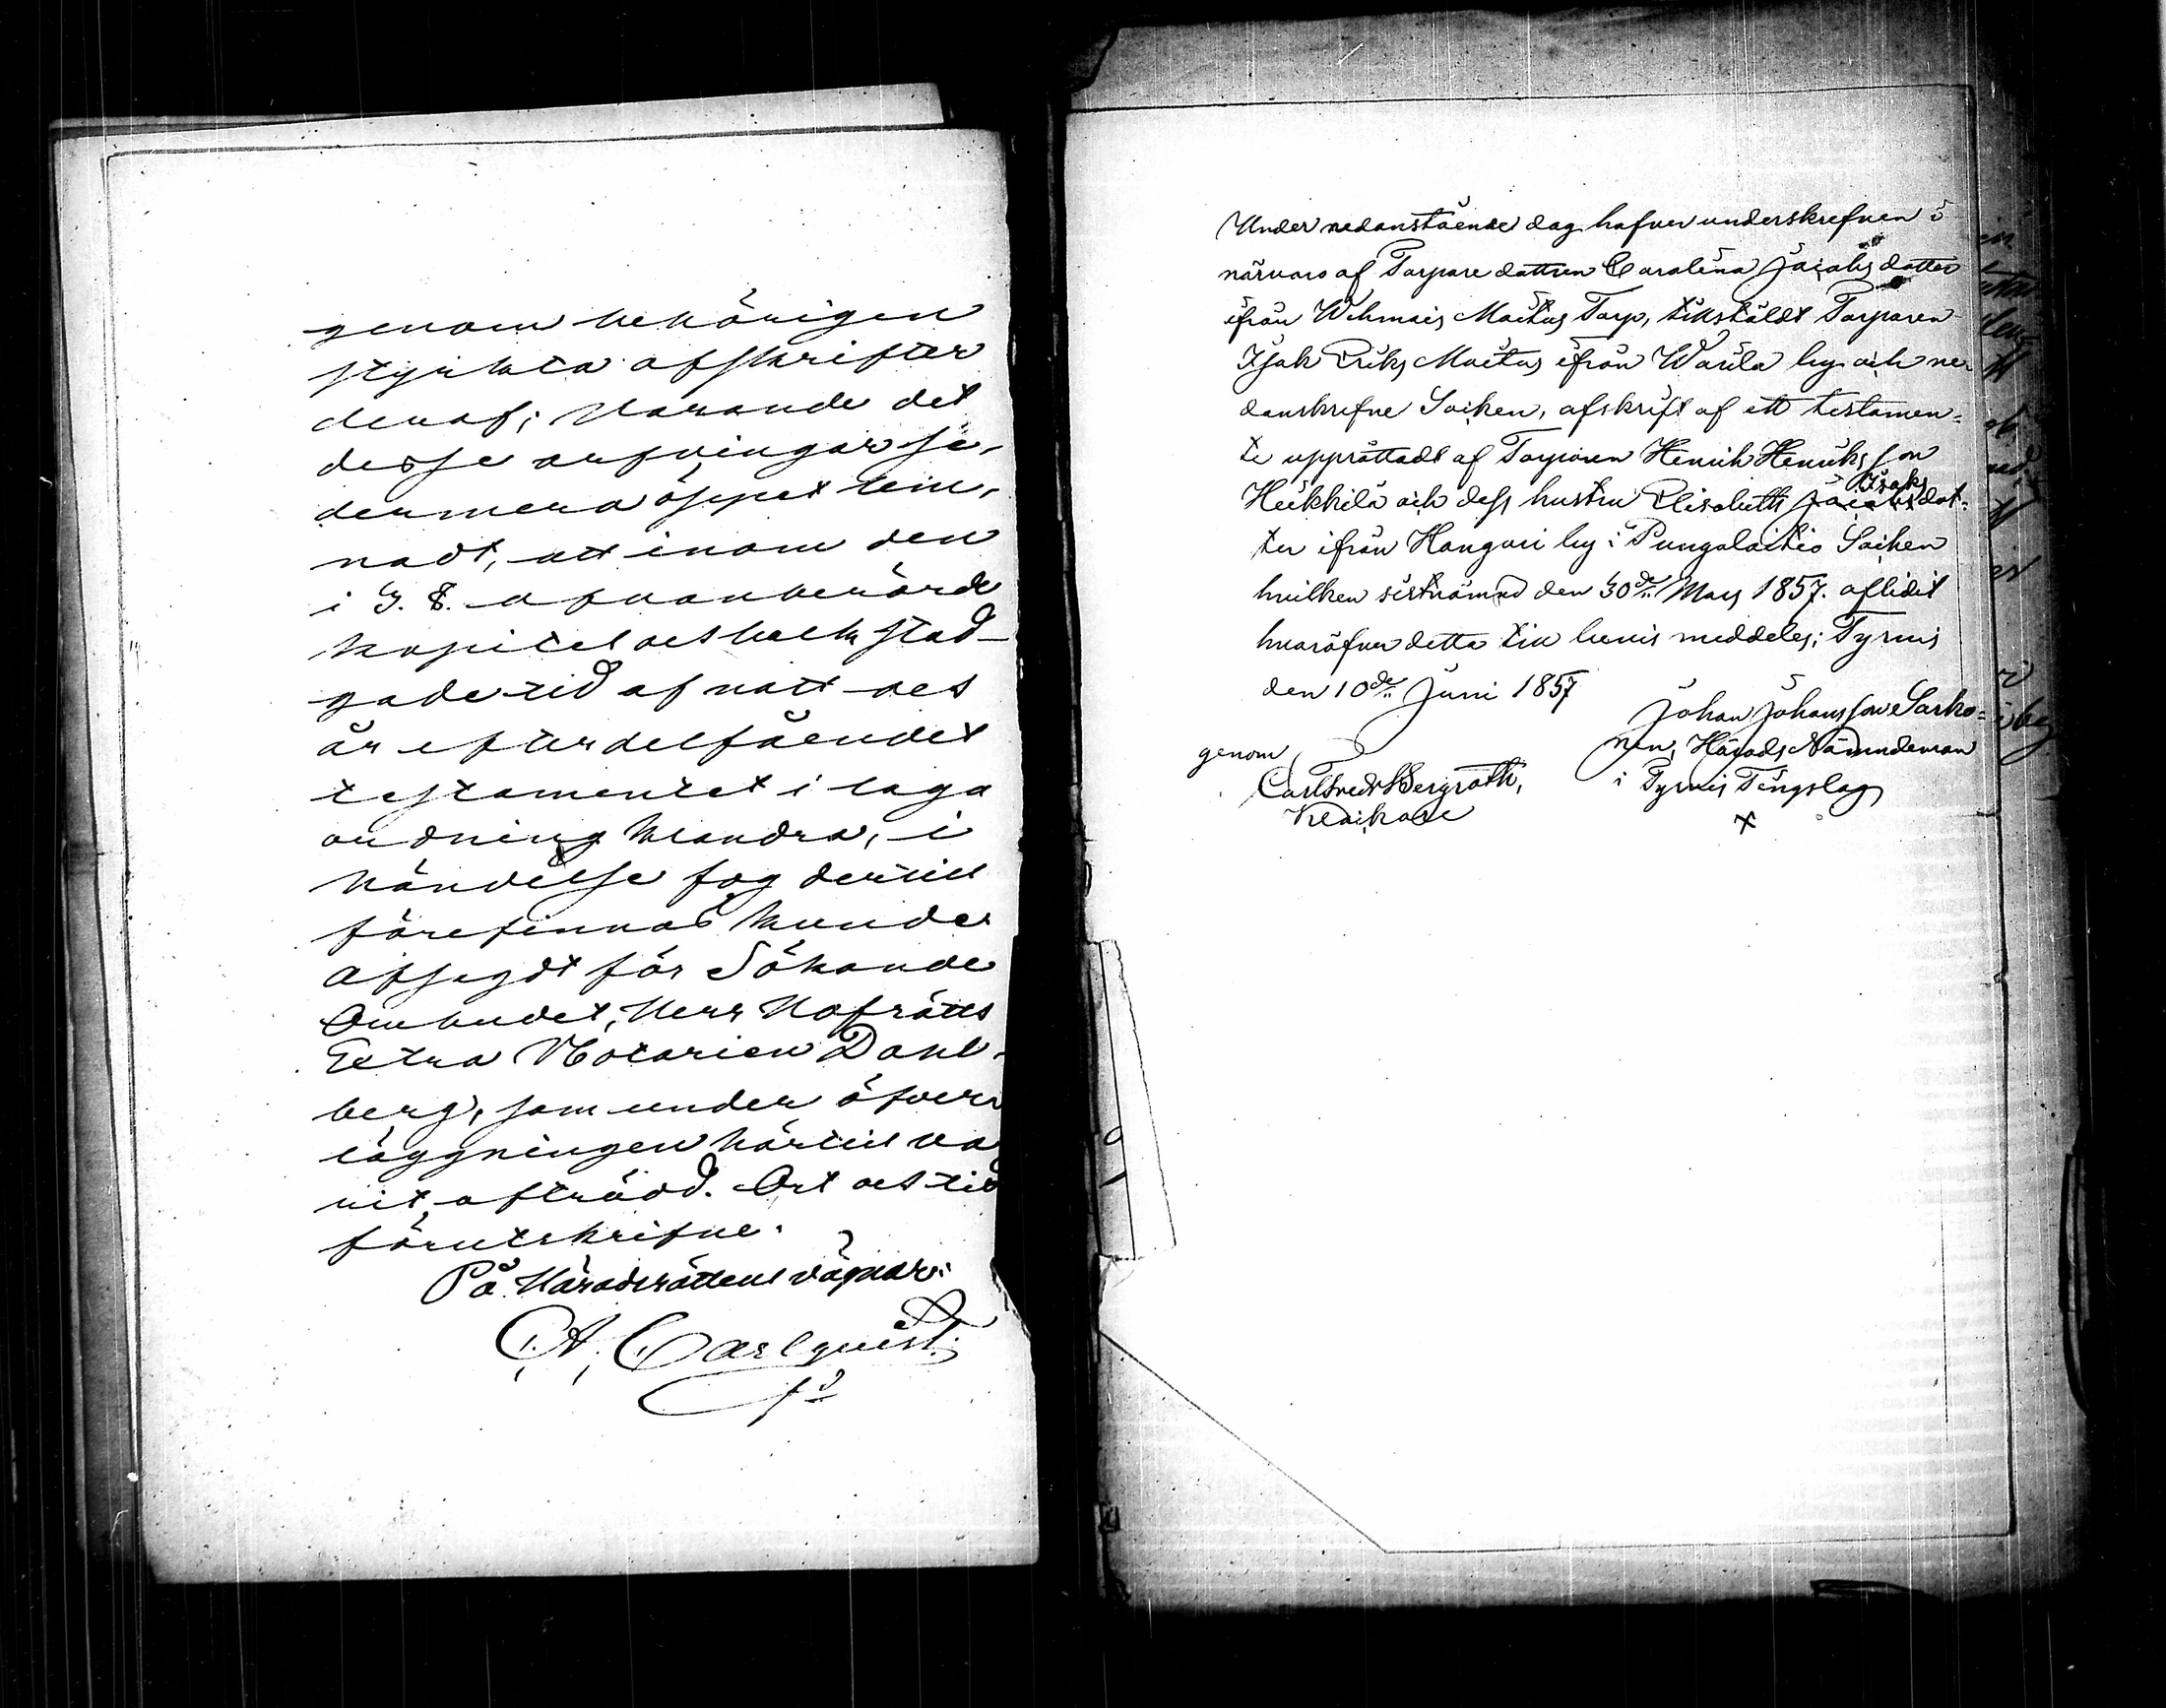 genom behörigen
styrkta afskrifter
deraf; varande det
desse arfvingar se-
dermera öppet lem-
nadt, att inom den
i J. B. ofvanberörde
kapitel och balk stad-
gade tid af natt och
år efter delfåendet
testamentet i laga
ordning klandra, i
händelse fog dertill
förefinnas kunde
Afsagdt för Sökande
Ombudet, Herr Hofrätts
Extra Notarien Dahl-
berg, som under öfver-
läggningen härtill va-
rit afträdd. Ort och tid
förutskrifne.
På Häradsrättens vägnar:
C. A. Carlqvist.
Under nedanstående dag hafver underskrefven i
närvaro af Torpare dottren Carolina Jacobsdotter
ifrån Wehmais Maitus Torp, tillstäldt Torparen
Isak Eriks Maitus ifrån Warila by och ne-
danskrefne Socken, afskrift af ett testamen-
te upprättadt af Torparen Henrik Henriksson
Heikkilä och dess hustru Elisabeth Jacobs Isaks dot-
ter ifrån Hangari by i Pungalaitio Socken
hvilken sistnämnd den 30de Maij 1857. aflidit
hvaröfver detta till bevis meddeles; Tyrvis
den 10de Juni 1857
Johan Johansson Sarko-
nen, Härads Nämndeman
i Tyrvis Tingslag
x
genom
Carl Fredr Bergroth,
Klåckare